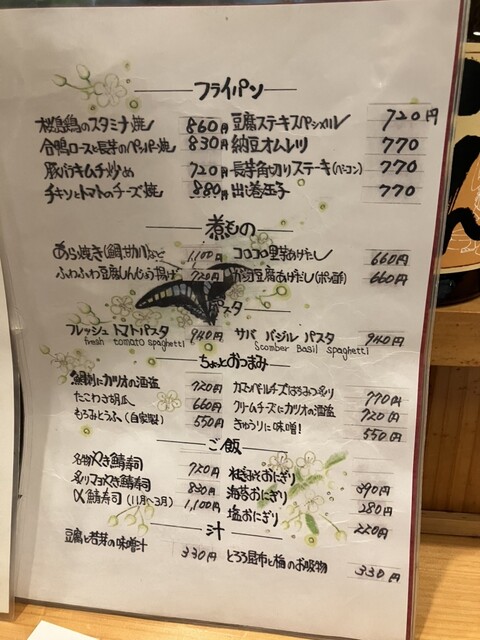 フライパン
桜島鶏のスタミナ焼 860円 豆腐ステーキスペシャル 720円
合鴨ロースと長芋のペッパー焼 830円 納豆オムレツ 770
豚バラキムチ炒め 720円 長芋角切りステーキ(ベーコン) 770
チキンとトマトのチーズ焼 880円 出し巻玉子 770
煮もの
あら焼き(鯛、サカバ)など 1,100円 コロコロ里芋あげだし 660円
ふわふわ豆腐しんじょう揚げ 720円 豆腐あげだし(ポン酢) 660円
パスタ
フレッシュ トマトパスタ 940円 サバ バジル パスタ 940円
fresh tomato spaghetti Scomber Basil spaghetti
ちょっとおつまみ
鮪刺にカツオの酒盗 720円 カマンベールチーズはちみつ炙り 770円
たこわさ胡瓜 660円 クリームチーズにカツオの酒盗 720円
もろみとうふ(自家製) 550円 きゅうりに味噌! 550円
ご飯
名物やき鯖寿司 720円 粒みそおにぎり 390円
炙りマヨやき鯖寿司 830円 海苔おにぎり 280円
〆鯖寿司(11月〜3月) 1,100円 塩おにぎり 220円
汁
豆腐と若芽の味噌汁 330円 とろろ昆布と梅のお吸物 330円